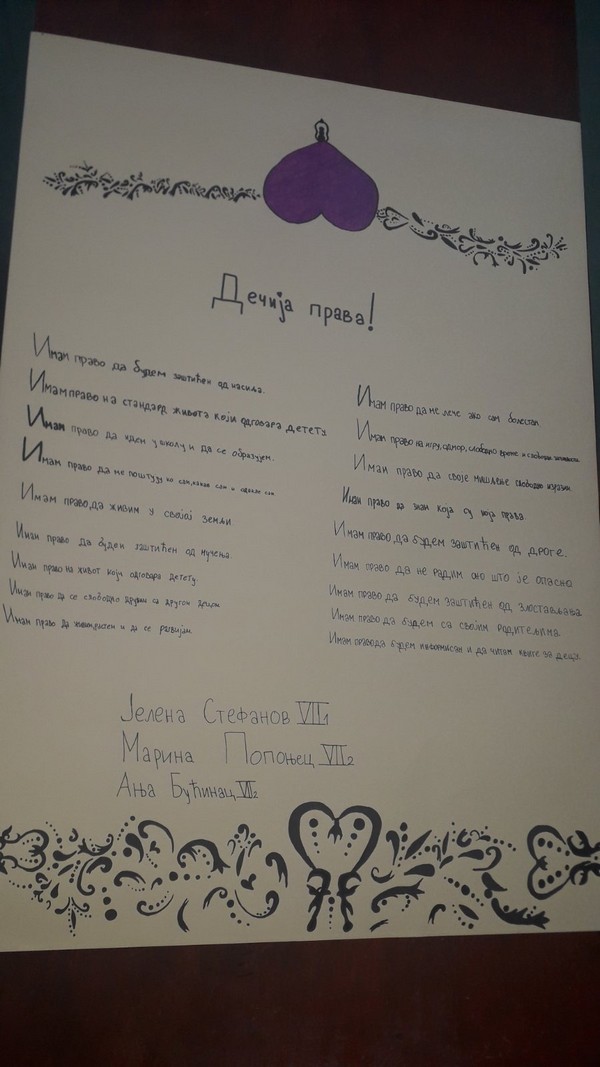 Дечија права!
Имам право да будем заштићен од насиља.
Имам право на стандард живота који одговара детету.
Имам право да идем у школу и да се образујем.
Имам право да ме поштују ко сам, какав сам и одакле сам.
Имам право, да живим у својој земљи
Имам право да будем заштићен од мучења.
Имам право на живот који одговара детету.
Имам право да се слободно дружим са другом децом.
Имам право да живим, растем и да се развијам.
Имам право да ме лече ако сам болестан.
Имам право на игру, одмор, слободно време и
Имам право да своје мишљење слободно изразим.
Имам право да знам која су моја права.
Имам право, да будем заштићен од дроге.
Имам право да не радим оно што је опасно
Имам право да будем заштићен од злостављања
Имам право да будем са својим родитељима.
Имам право да будем информисан и да читам књиге за децу.
Јелена Стефанов VII1
Марина Попоњец VII2
Ања Бућинац VII2